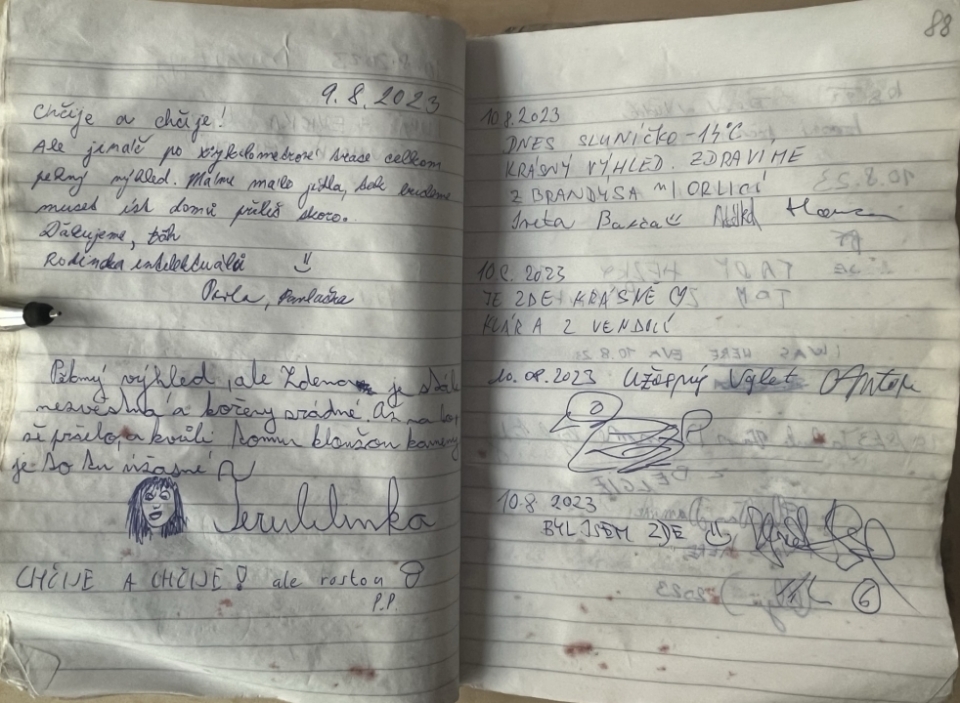 9.8.2023
Chčije a chčije!
Ale jinač po kilometrové trase celkem
pěkný výhled. Máme málo jídla, tak budeme
muset íst domů příliš skoro.
Děkujeme,
Rodinka intelektuálů
Pavlačka
Pěkný výhled, ale Zdena je stále
nezvěstná a kořeny zrádné. Až na to,
že pršelo, a kvůli tomu kloužou kameny
je to tu úžasné
Terulilinka
CHČIJE A CHČIJE! ale rostou
P.P.
88
10.8.2023
DNES SLUNÍČKO - 14°C
KRÁSNÝ VÝHLED. ZDRAVÍME
Z BRANDÝSA N/ ORLICÍ
Iveta
10.8. 2023
JE ZDE KRÁSNĚ
KLÁRA Z VENDOLÍ
10.08.2023 Úžasný Výlet
10.8 2023
BYL JSEM ZDE
6